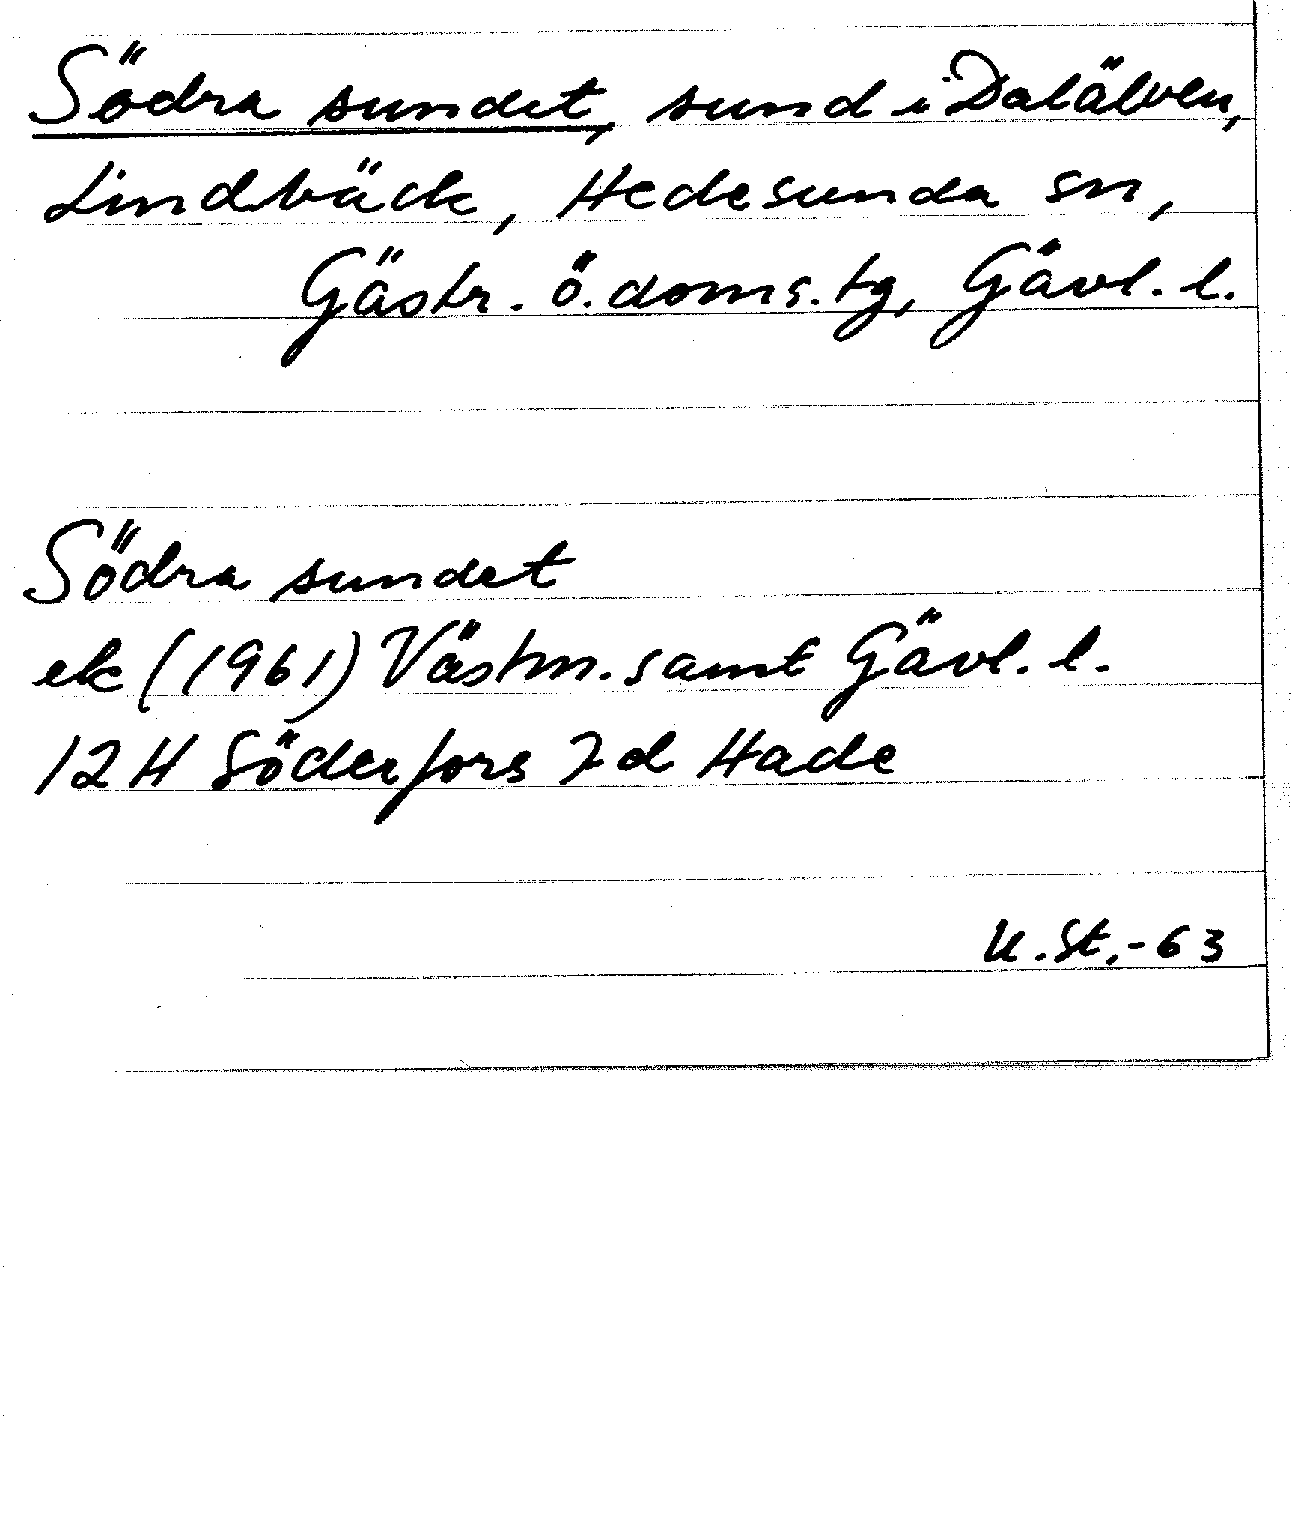 Södra sundet, sund i Dalälven,
Lindbäck, Hedesunda sn,
Gästr. ö. doms. tg, Gävl. l.
Södra sundet
ek (1961) Västm. samt Gävl. l.
12 H Söderfors 7d Hade
U. St. -63